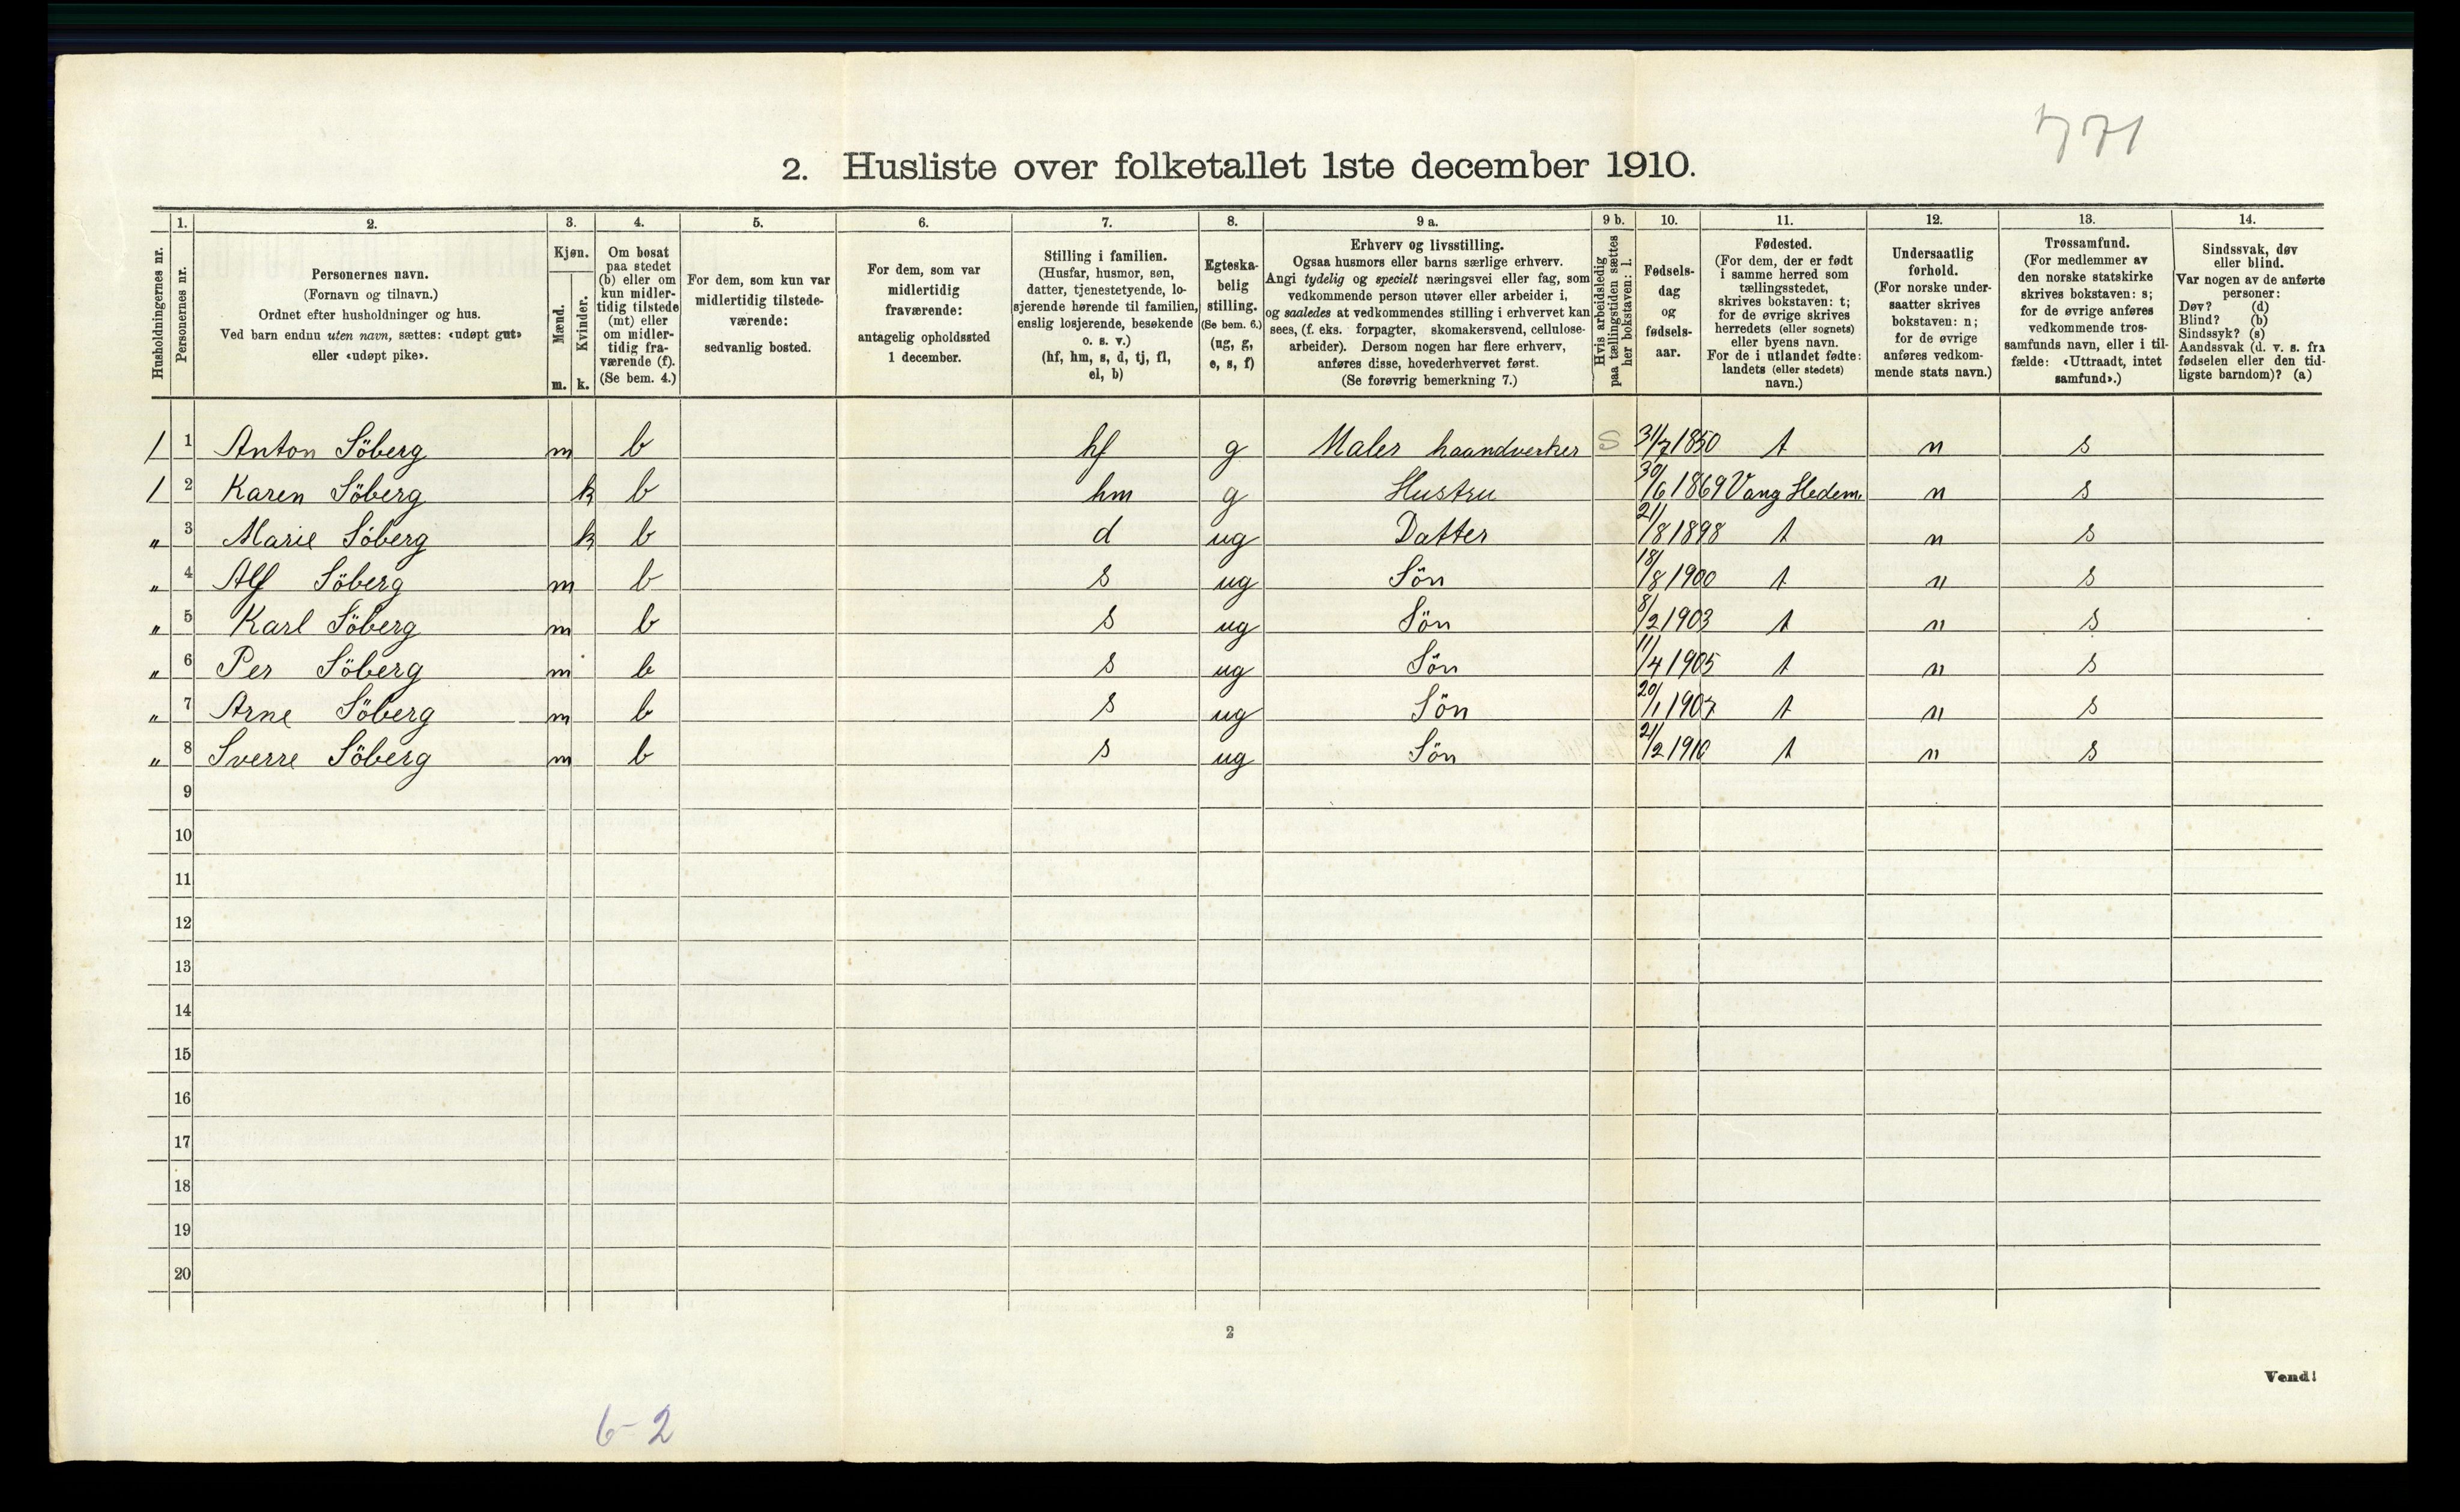 771
2. Husliste over folketallet 1ste december 1910.
1. 2. 3. 4. 5. 6. 7. 8. 9 a. 9 b. 10. 11. 12. 13. 14.
Husholdningernes nr.
Personernes nr.
Personernes navn.
(Fornavn og tilnavn.)
Ordnet efter husholdninger og hus.
Ved barn endnu uten navn, sættes: «udøpt gut»
eller «udøpt pike».
Kjøn.
Mænd.
Kvinder.
m. k.
Om bosat
paa stedet
(b) eller om
kun midler-
tidig tilstede
(mt) eller
om midler-
tidig fra-
værende (f).
(Se bem. 4.)
For dem, som kun var
midlertidig tilstede-
værende:
sedvanlig bosted.
For dem, som var
midlertidig
fraværende:
antagelig opholdssted
1 december.
Stilling i familien.
(Husfar, husmor, søn,
datter, tjenestetyende, lo-
sjerende hørende til familien,
enslig losjerende, besøkende
o. s. v.)
(hf, hm, s, d, tj, fl,
el, b)
Egteska-
belig
stilling.
(Se bem. 6.)
(ug, g,
e, s, f)
Erhverv og livsstilling.
Ogsaa husmors eller barns særlige erhverv.
Angi tydelig og specielt næringsvei eller fag, som
vedkommende person utøver eller arbeider i,
og saaledes at vedkommendes stilling i erhvervet kan
sees, (f. eks. forpagter, skomakersvend, cellulose-
arbeider). Dersom nogen har flere erhverv,
anføres disse, hovederhvervet først.
(Se forøvrig bemerkning 7.)
Hvis arbeidsledig
paa tællingstiden sættes
her bokstaven: l.
Fødsels-
dag
og
fødsels-
aar.
Fødested.
(For dem, der er født
i samme herred som
tællingsstedet,
skrives bokstaven: t;
for de øvrige skrives
herredets (eller sognets)
eller byens navn.
For de i utlandet fødte:
landets (eller stedets)
navn.)
Undersaatlig
forhold.
(For norske under-
saatter skrives
bokstaven: n;
for de øvrige
anføres vedkom-
mende stats navn.)
Trossamfund.
(For medlemmer av
den norske statskirke
skrives bokstaven: s;
for de øvrige anføres
vedkommende tros-
samfunds navn, eller i til-
fælde: «Uttraadt, intet
samfund».)
Sindssvak, døv
eller blind.
Var nogen av de anførte
personer:
Døv? (d)
Blind? (b)
Sindssyk? (s)
Aandssvak (d. v. s. fra
fødselen eller den tid-
ligste barndom)? (a)
1 1 Anton Söberg m b hf g Maler haandverker S 31/7 1850 t n s
1 2 Karen Söberg k b hm g Hustru 30/6 1869 Vang Hedem. n s
„ 3 Marie Söberg k b d ug Datter 21/8 1898 t n s
„ 4 Alf Söberg m b s ug Sön 18/8 1900 t n s
„ 5 Karl Söberg m b s ug Sön 8/2 1903 t n s
„ 6 Per Söberg m b s ug Sön 11/4 1905 t n s
„ 7 Arne Söberg m b s ug Sön 20/1 1907 t n s
„ 8 Sverre Söberg m b s ug Sön 21/2 1910 t n s
9
10
11
12
13
14
15
16
17
18
19
20
2
Vend!
6-2